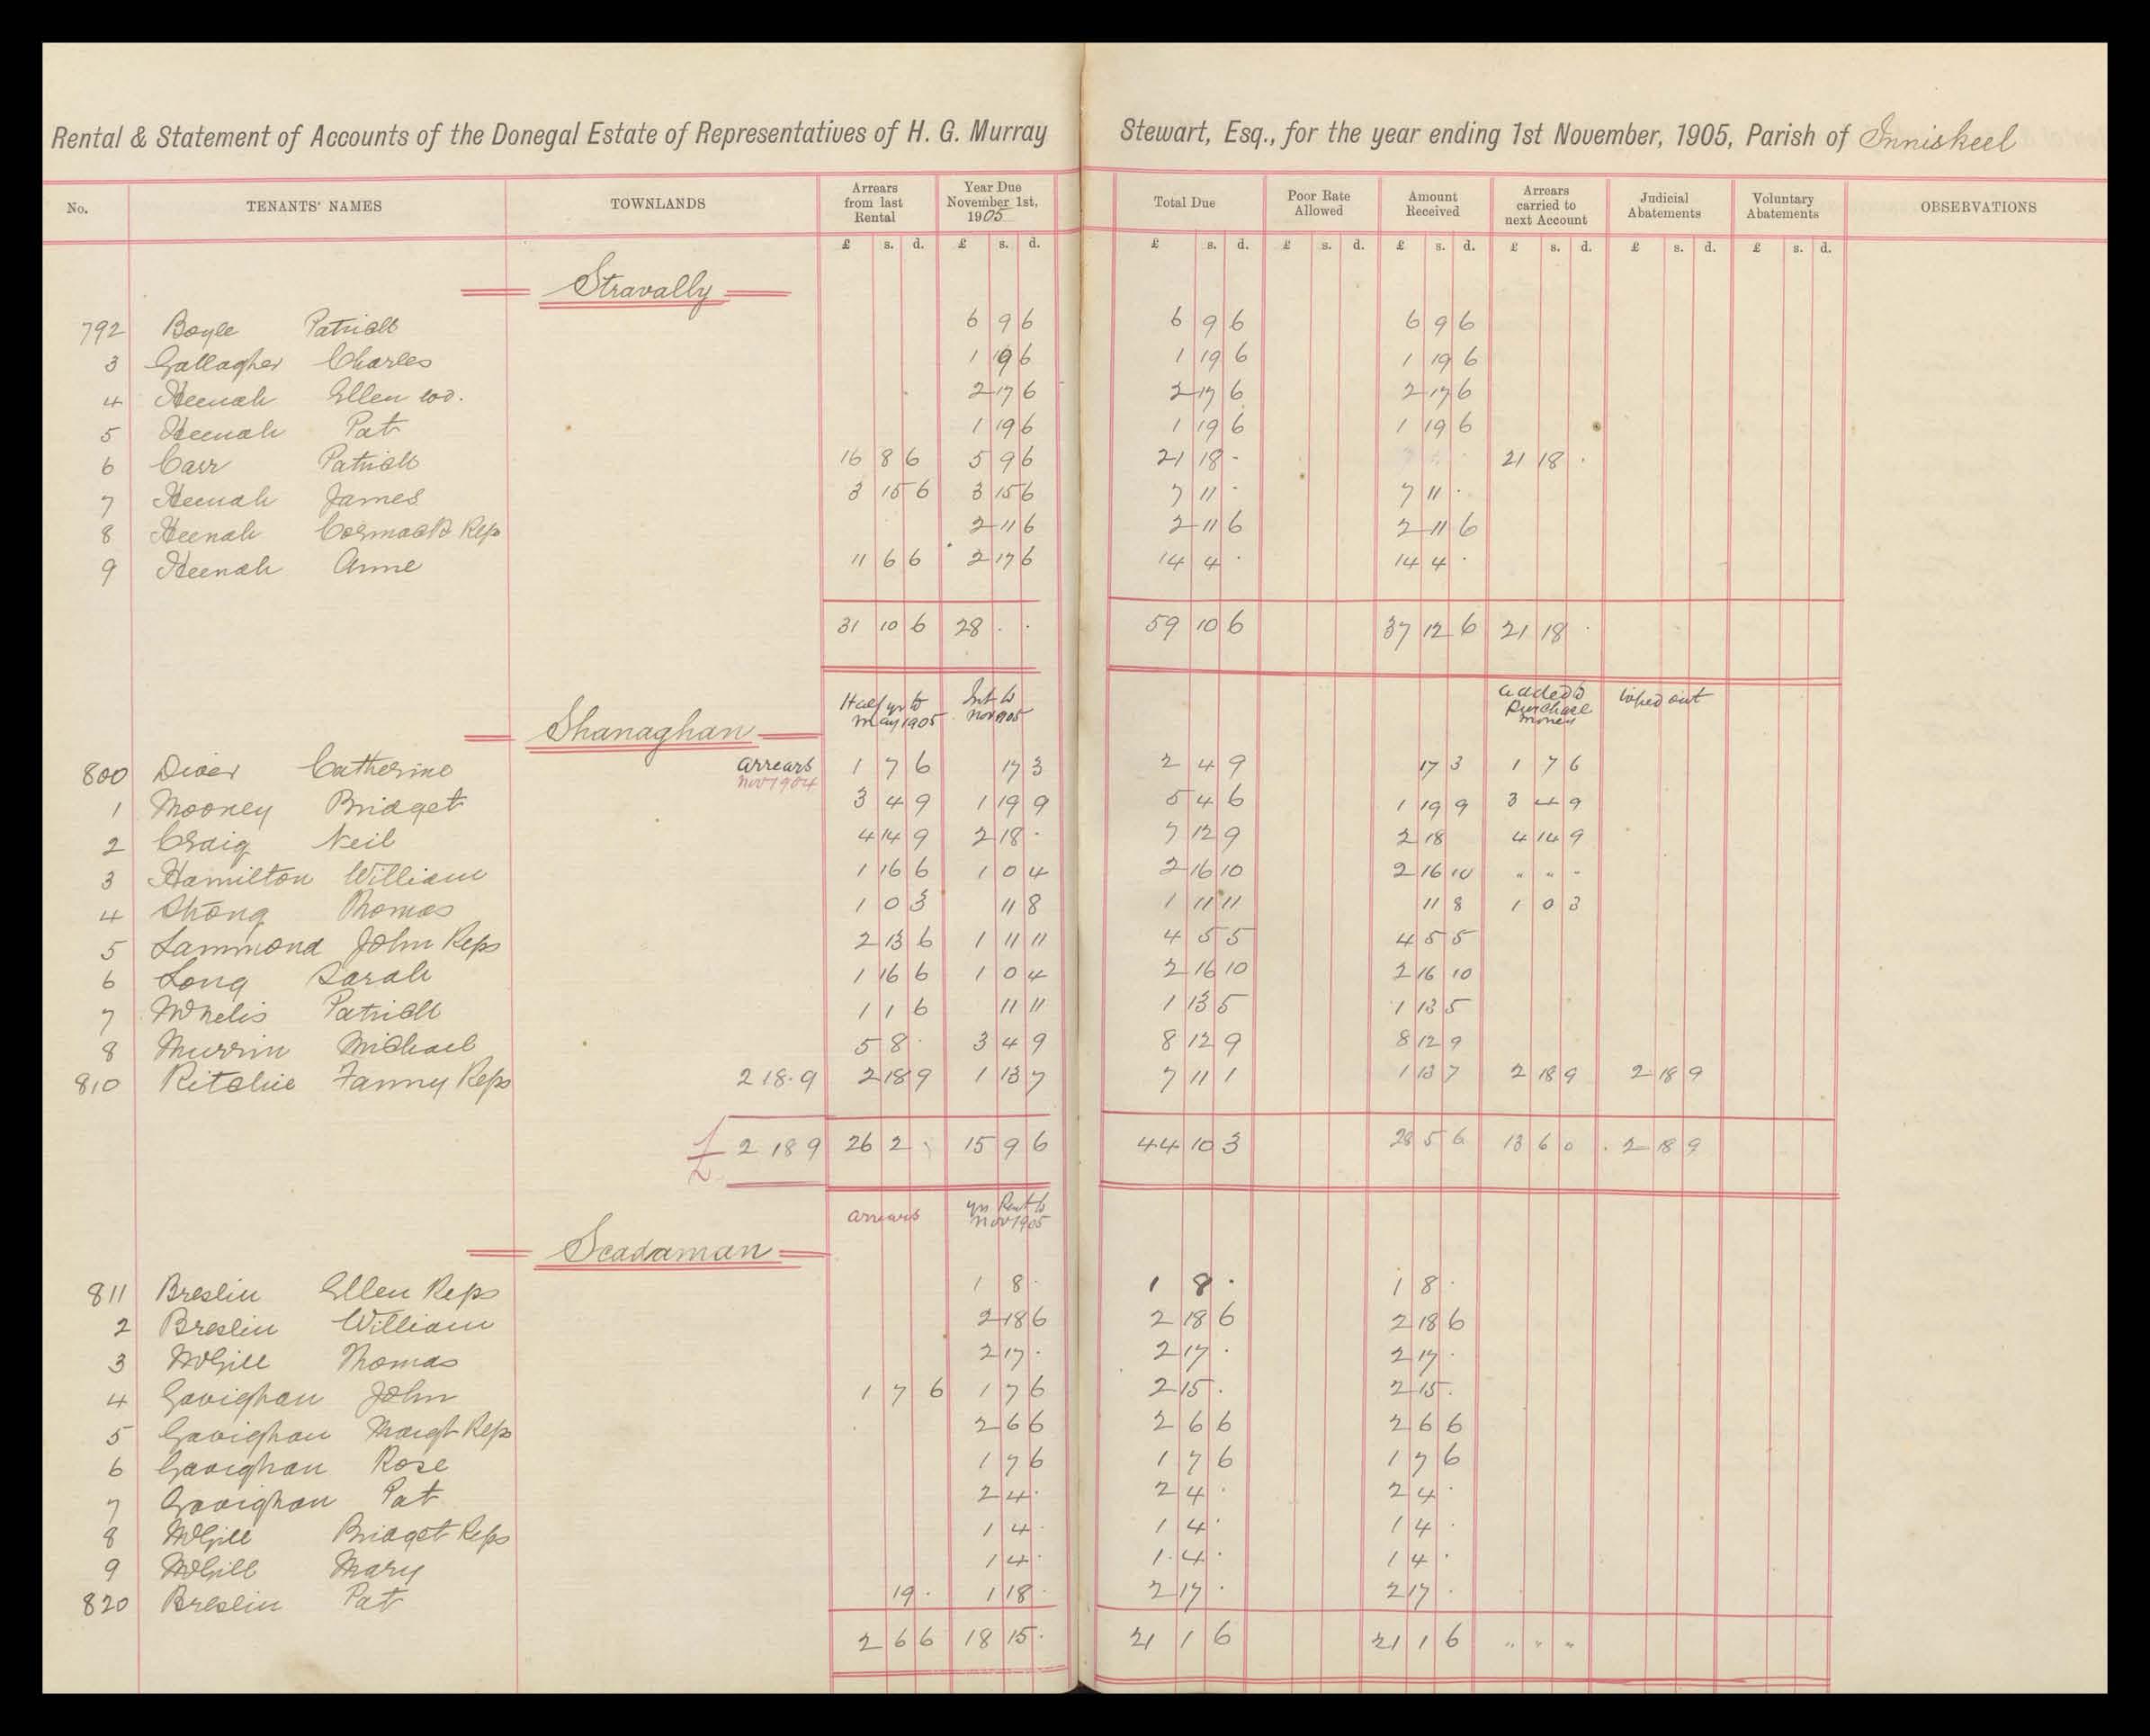 Rental & Statement of Accounts of the Donegal Estate of Representatives of H. G. Murray Stewart, Esq., for the year ending 1st November, 1905, Parish of Inniskeel
No. TENANTS' NAMES TOWNLANDS Arrears from last Rental Year Due November 1st, 1905 Total Due Poor Rate Allowed Amount Received Arrears carried to next Account Judicial Abatements Voluntary Abatements OBSERVATIONS
£ s. d. £ s. d. £ s. d. £ s. d. £ s. d. £ s. d. £ s. d. £ s. d.
Stravally
792 Boyle Patrick 6 9 6 6 9 6 6 9 6
3 Gallagher Charles 1 19 6 1 19 6 1 19 6
4 Heenah Ellen wd. 2 17 6 2 17 6 2 17 6
5 Heenah Pat 1 19 6 1 19 6 1 19 6
6 Carr Patrick 16 8 6 5 9 6 21 18 - 21 18 .
7 Heenah James 3 15 6 3 15 6 7 11 - 7 11 .
8 Heenah Cormack Reps 2 11 6 2 11 6 2 11 6
9 Heenah Anne 11 6 6 2 17 6 14 4 . 14 4 .
31 10 6 28 . . 59 10 6 37 12 6 21 18 .
Half yr to May 1905 Int to Nov 1905 added to Purchase money wiped out
Shanaghan
800 Diver Catherine arrears Nov 1904 1 7 6 17 3 2 4 9 17 3 1 7 6
1 Mooney Bridget 3 4 9 1 19 9 5 4 6 1 19 9 3 4 9
2 Craig Neil 4 14 9 2 18 . 7 12 9 2 18 4 14 9
3 Hamilton William 1 16 6 1 0 4 2 16 10 2 16 10 " " "
4 Strong Thomas 1 0 3 11 8 1 11 11 11 8 1 0 3
5 Lammond John Reps 2 13 6 1 11 11 4 5 5 4 5 5
6 Long Sarah 1 16 6 1 0 4 2 16 10 2 16 10
7 McNelis Patrick 1 1 6 11 11 1 13 5 1 13 5
8 Murrin Michael 5 8 . 3 4 9 8 12 9 8 12 9
810 Ritchie Fanny Reps 2 18 . 9 2 18 9 1 13 7 7 11 1 1 13 7 2 18 9 2 18 9
£ 2 18 9 26 2 \ 15 9 6 44 10 3 28 5 6 13 6 0 2 18 9
arrears yrs Rent to Nov 1905
Scadaman
811 Breslin Ellen Reps 1 8 . 1 8 . 1 8 .
2 Breslin William 2 18 6 2 18 6 2 18 6
3 McGill Thomas 2 17 . 2 17 . 2 17 .
4 Gavighan John 1 7 6 1 7 6 2 15 . 2 15 .
5 Gavighan Margt Reps 2 6 6 2 6 6 2 6 6
6 Gavighan Rose 1 7 6 1 7 6 1 7 6
7 Gavighan Pat 2 4 . 2 4 . 2 4 .
8 McGill Bridget Reps 1 4 . 1 4 . 1 4 .
9 McGill Mary 1 4 . 1 4 . 1 4 .
820 Breslin Pat 19 . 1 18 . 2 17 . 2 17 .
2 6 6 18 15 . 21 1 6 21 1 6 " " "